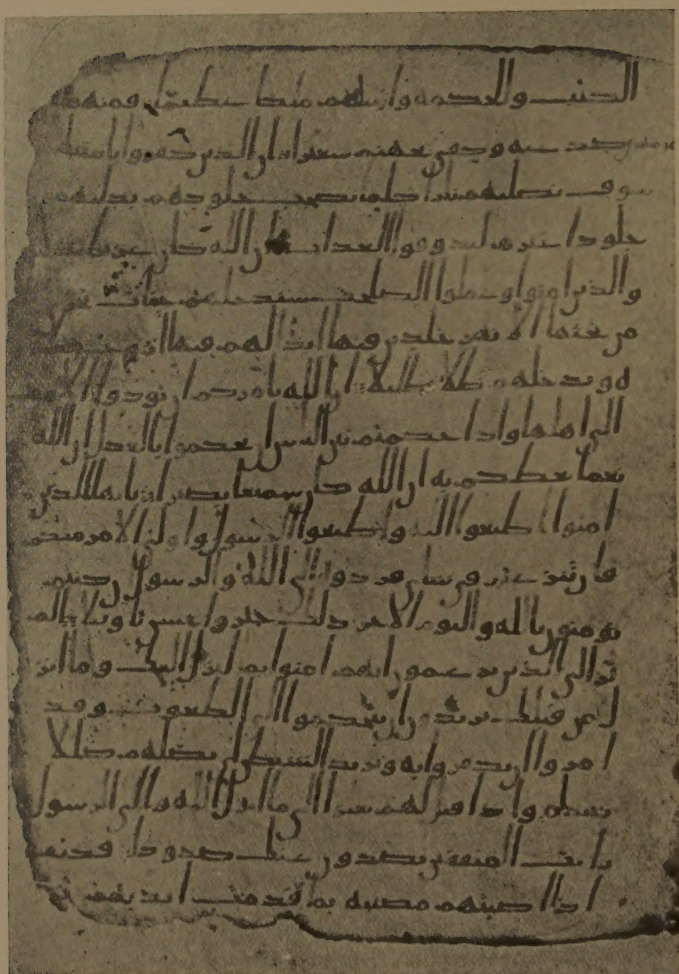 الكتب والحكمه واتينهم ملكا عظيما فمنهم
صد عنه وكفى بجهنم سعيرا ان الذين كفروا بايتنا
سوف نصليهم نارا كلما نضجت جلودهم بدلنهم
جلودا غيرها ليذوقوا العذاب ان الله كان عزيزا حكيما
والذين امنوا وعملوا الصلحت سندخلهم جنت تجري
من تحتها الانهر خلدين فيها ابدا لهم فيها ازوج مطهر
ه وندخلهم ظلا ظليلا ان الله يامركم ان تودوا الامنت
الى اهلها واذا حكمتم بين الناس ان تحكموا بالعدل ان الله
نعما يعظكم به ان الله كان سميعا بصيرا يايها الذين
امنوا اطيعوا الله واطيعوا الرسول واولي الامر منكم
فان تنزعتم في شي فردوه الى الله والرسول ان كنتم
تومنون بالله واليوم الاخر ذلك خير واحسن تاويلا الم
تر الى الذين يزعمون انهم امنوا بما انزل اليك وما انز
ل من قبلك يريدون ان يتحكموا الى الطغوت وقد
امروا ان يكفروا به ويريد الشيطن ان يضلهم ضللا
بعيدا واذا قيل لهم تعلوا الى ما انزل الله والى الرسول
رايت المنفقين يصدون عنك صدودا فكيف
اذا اصبتهم مصيبه بما قدمت ايديهم ثم